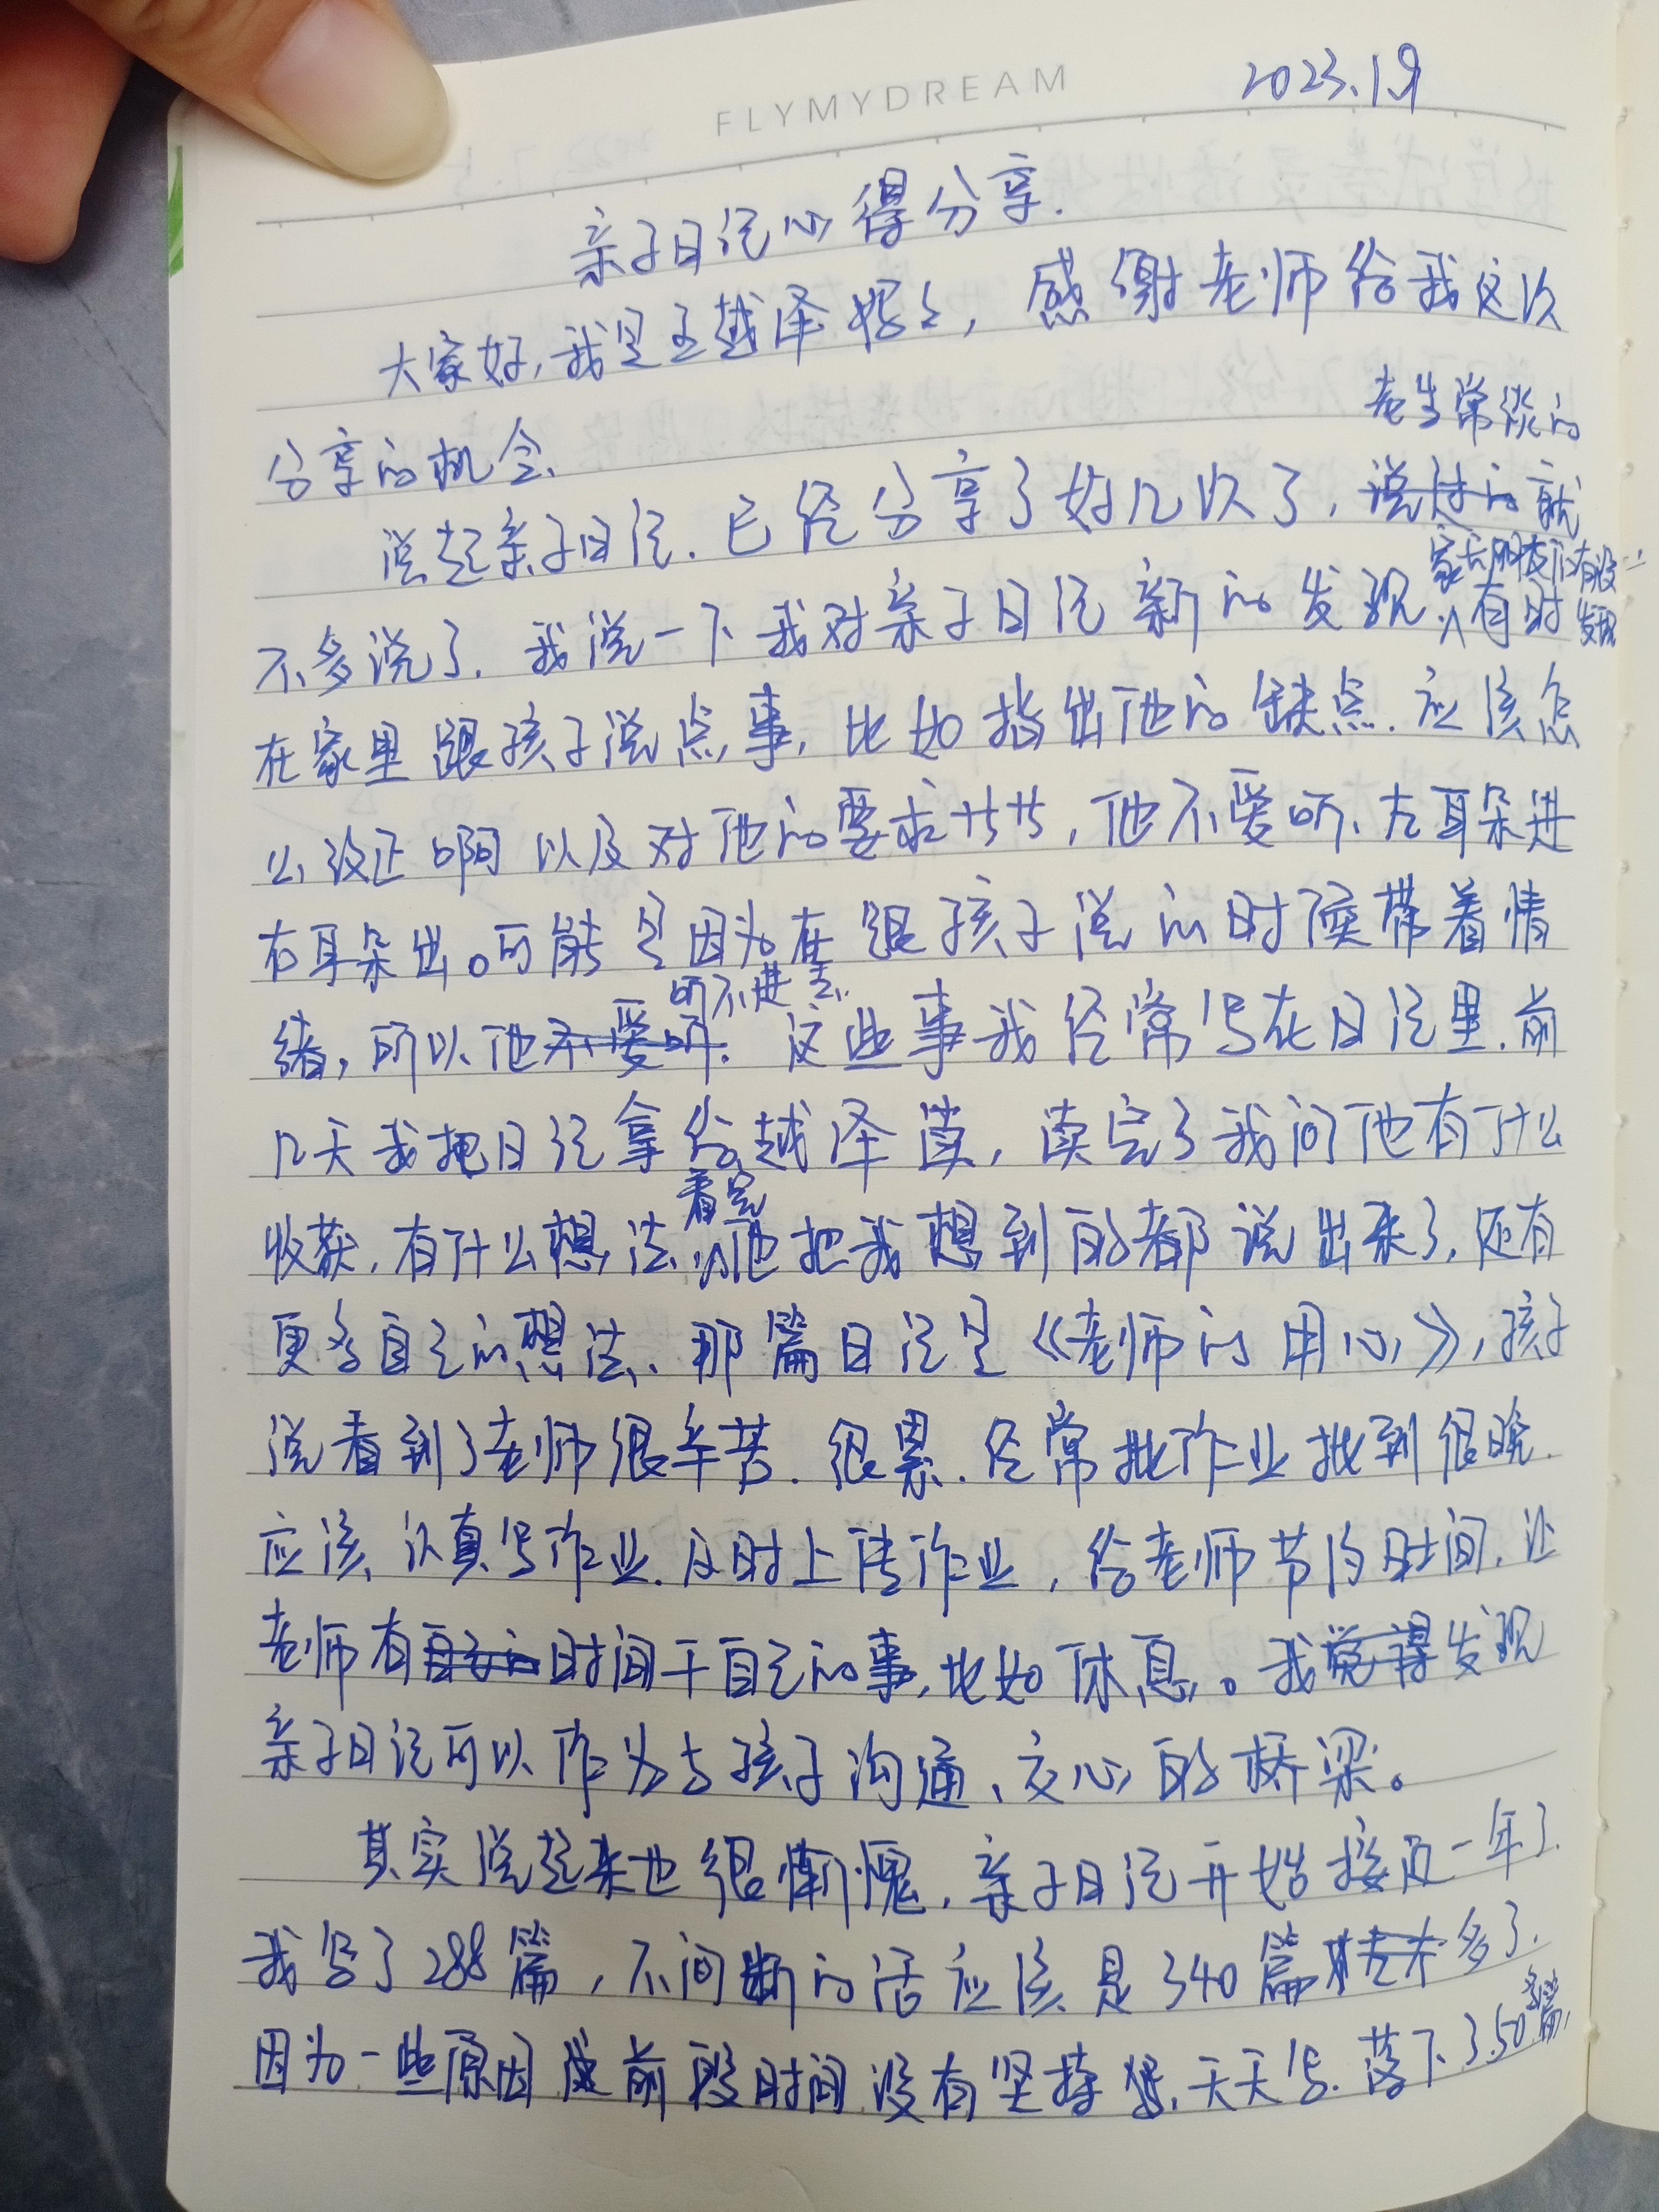 FLYMYDREAM
2023.1.9
亲子日记心得分享.
大家好,我是王越泽妈妈,感谢老师给我这次
老生常谈的
分享的机会、
说起亲子日记.已经分享了好几次了,说过的就
家长朋友们有没
不多说了.我说一下我对亲子日记新的发现 有时
发现
在家里跟孩子说点事,比如指出他的缺点.应该怎
么改正啊以及对他的要求廿廿,他不爱听、左耳朵进
右耳朵出。可能是因为在跟孩子说的时候带着情
听不进去.
绪,所以他不爱听.这些事我经常写在日记里.前
几天我把日记拿给越泽读,读完了我问他有什么
看完
收获.有什么想法.他把我想到的都说出来了,还有
更多自己的想法、那篇日记是《老师的用心》,孩子
说看到了老师很辛苦.很累.经常批作业批到很晚.
应该认真写作业.及时上传作业,给老师节约时间.让
老师有自己的时间干自己的事,比如休息。我觉得发现
亲子日记可以作为与孩子沟通、交心的桥梁。
其实说起来也很惭愧.亲子日记开始接近一年了.
我写了288篇,不间断的话应该是340篇 多了.
多篇,
因为一些原因 前段时间没有坚持 天天写.落下了50